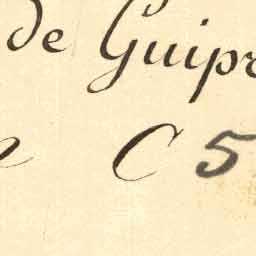 de Guipr
C 5